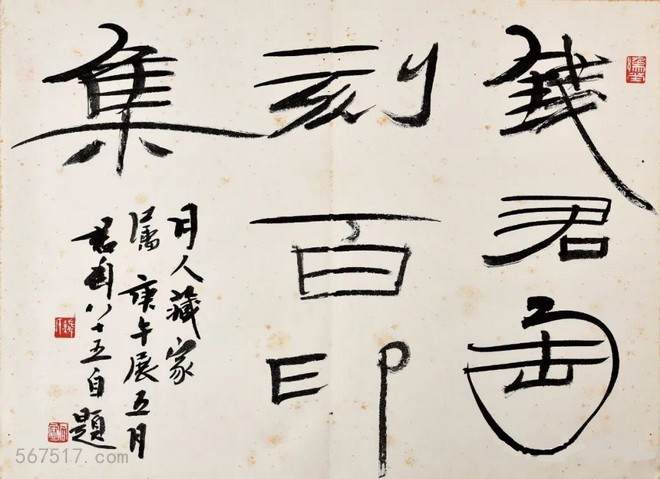 錢君匋
刻百印
集
月人藏家
庚午展五月
君匋八十五自題
567517.com